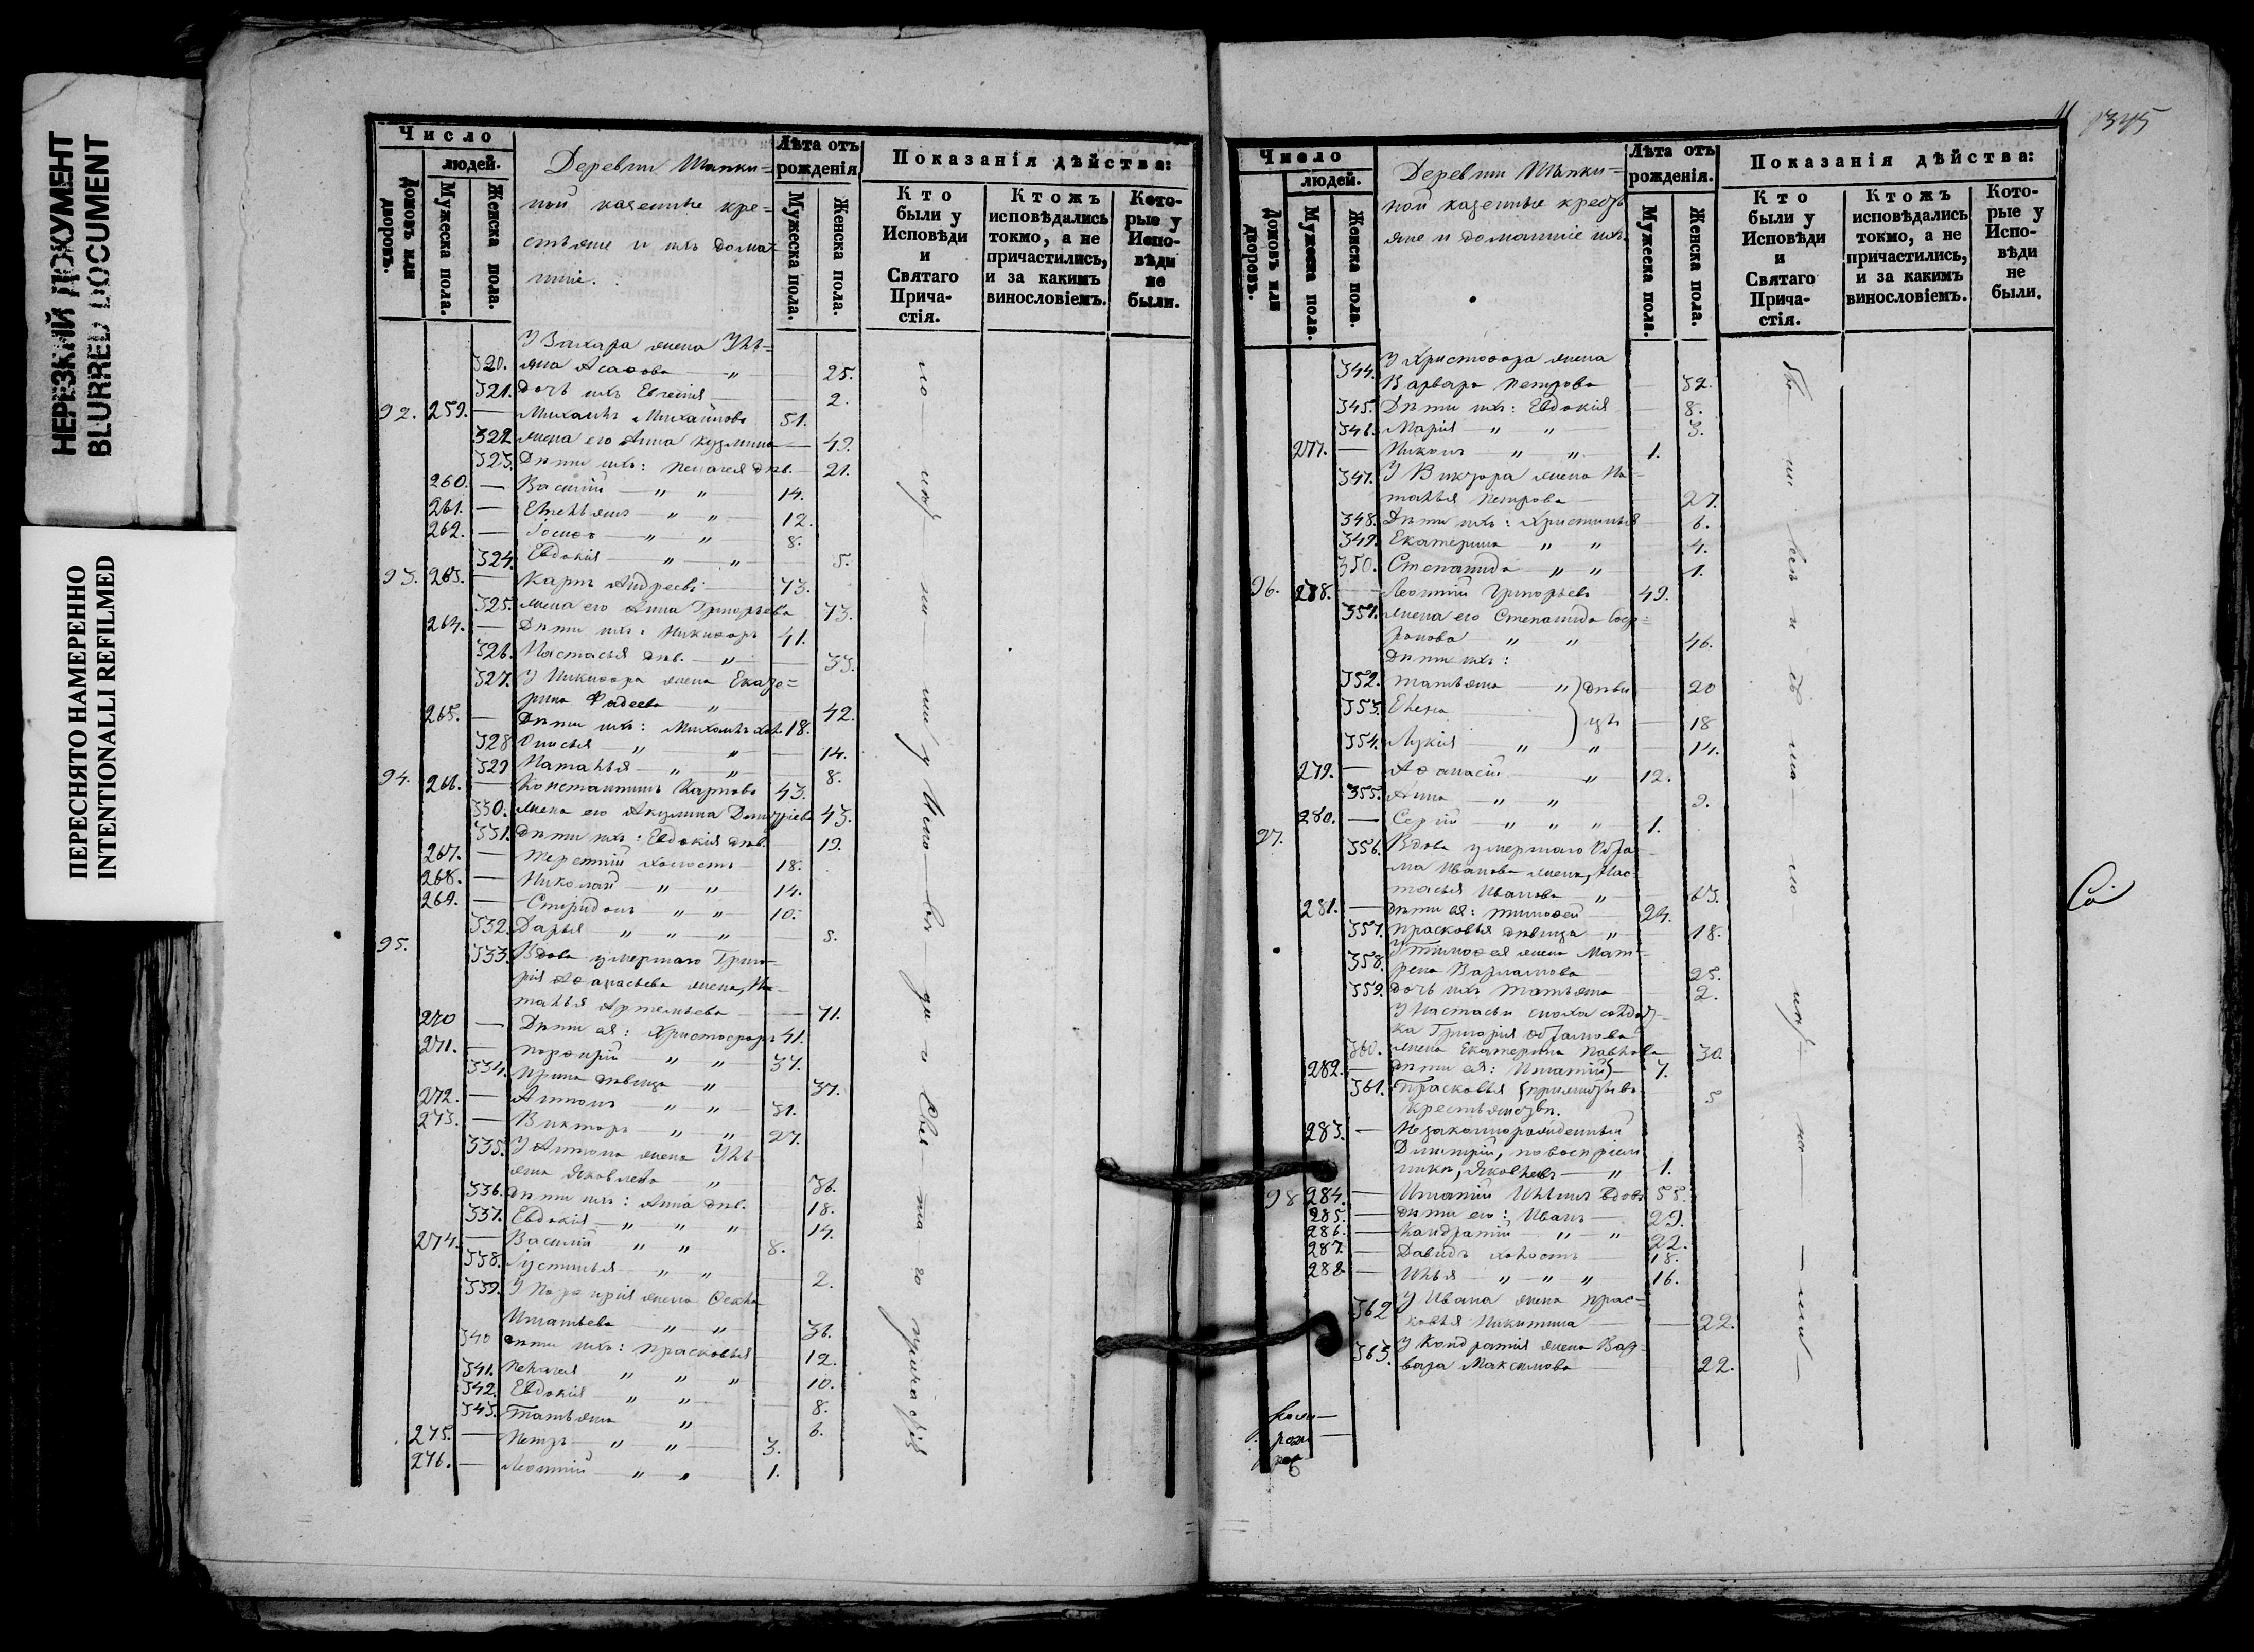 НЕРЕЗКИЙ ДОКУМЕНТ
BLURRED DOCUMENT
ПЕРЕСНЯТО НАМЕРЕННО
INTENTIONALLI REFILMED
Число
людей.
Домовъ или дворовъ.
Мужеска пола.
Женска пола.
Деревни Шапки=
ной казенные кре=
стьяне и ихъ дома=
шніе.
Лѣта отъ рожденія
Мужеска пола.
Женска пола.
Показанія дѣйства:
Кто были у Исповѣди и Святаго Прича-стія.
Ктожъ исповѣдались токмо, а не причастились, и за какимъ винословіемъ.
Кото-рые у Испо-вѣди не были.
У Захара жена Улі=
320. яна Асафова — " 25.
321. дочь ихъ Евгенія — 2.
92. 259. — Михаилъ Михайловъ 51.
322. жена его Анна Кузмина — 49.
323. Дѣти ихъ: Пелагея дѣв. — 21.
260. — Василій — " " 14.
261. — Емельянъ — " " 12.
262. — Іосифъ — " " 8.
324. Евдокія — " — " 5.
93. 263. — Карпъ Андреевъ — 73.
325. жена его Анна Григорьева 73.
264. — Дѣти ихъ: Никифоръ 41.
326. Настасья дѣв. — " 33.
327. У Никифора жена Екате=
рина Фадеева " 42.
265. — Дѣти ихъ: Михаилъ хол. 18.
328 Анисья — " " 14.
329 Наталья — " " 8.
94. 266. — Константинъ Карповъ 43.
330. жена его Акулина Дмитріева 43.
331. дѣти ихъ: Евдокія дѣв. 19.
267. — Терентій холостъ — 18.
268. — Николай — " " 14.
269. — Спиридонъ " " 10.
332. Дарья " " " 5.
95. 333. Вдова умершаго Григо-
рія Афанасьева жена, На-
талья Артемьева — 71.
270 — Дѣти ея: Христофоръ 41.
271. — Порфирій " " 37.
334. Ирина дѣвица " 37.
272. — Антонъ — " " 31.
273. — Викторъ — " " 27.
335. У Антона жена Улі-
яна Яковлева — " 36.
336. дѣти ихъ: Анна дѣв. 18.
337. Евдокія — " " " 14.
274. — Василій " " 8.
338. Іустинья — " " 2.
339. У Порфирія жена Фекла
Игнатьева " " 36.
340 дѣти ихъ: Прасковья 12.
341. Пелагея " " " 10.
342. Евдокія " " 8.
343. Татьяна " 6.
275. — Петръ — " " 3.
276. — Леонтій " " 1.
Число
людей.
Домовъ или дворовъ.
Мужеска пола
Женска пола.
Деревни Шапки=
ной казенные кресть
яне и домашніе ихъ.
Лѣта отъ рожденія.
Мужеска пола.
Женска пола.
Показанія дѣйства:
Кто были у Исповѣди и Святаго Прича-стія.
Ктожъ исповѣдались токмо, а не причастились, и за какимъ винословіемъ.
Кото-рые у Испо-вѣди не были.
344. У Христофора жена
Варвара Петрова 32.
345. Дѣти ихъ: Евдокія 8.
346. Марія " " 3.
277. — Никонъ " " 1.
347. У Виктора жена На=
талья Петрова 27.
348. Дѣти ихъ: Христинья 6.
349. Екатерина " " 4.
350. Степанида " " 1.
96. 278. — Леонтій Григорьевъ 49.
351. жена его Степанида Соф=
ронова " " 46.
Дѣти ихъ:
352. Татьяна — " дѣви 20
353. Елена цы 18
354. Лукія " " 14.
279. — Афанасій " 12.
355. Анна — " " 9.
280. — Сергій " " " 1.
97. 356. Вдова умершаго Абра
ма Иванова жена, Нас-
тасья Иванова " 63.
281. — дѣти ея: Тимофей 24.
357. Прасковья дѣвица " 18.
358. У Тимофея жена Мат=
рена Варламова 25.
359. дочь ихъ Татьяна 2.
У Настасьи сноха солдат-
ка Григорія Абрамова
360. жена Екатерина Павлова 30.
282. — дѣти ея: Игнатій 7.
361. Прасковья 5
крестьянству.
283. — Незаконнорожденный
Димитрій, по воспріем
нику, Яковлевъ — " 1.
98 284. — Игнатій Ильинъ вдовъ 55.
285. — дѣти его: Иванъ — 29.
286. — Кондратій — " " 22.
287. — Давидъ холостъ 18.
288 — Илья " " " 16.
362 У Ивана жена Прас-
ковья Никитина 22.
363. У Кондратія жена Вар-
вара Максимова 22.